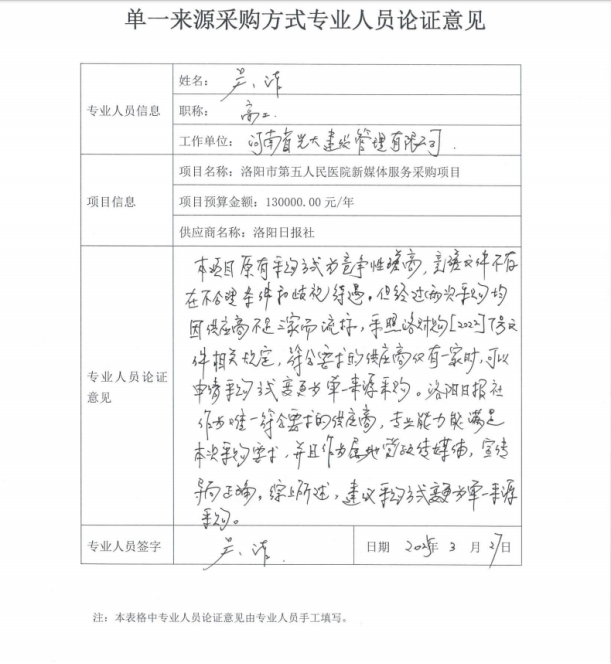 单一来源采购方式专业人员论证意见
专业人员信息
姓名：
职称：高工
工作单位：河南省光大建设管理有限公司
项目信息
项目名称：洛阳市第五人民医院新媒体服务采购项目
项目预算金额：130000.00 元/年
供应商名称：洛阳日报社
专业人员论证意见
本项目原有采购方式为竞争性磋商，磋文件不存
在不合理条件和歧视待遇。但经过两次采购均
因供应商不足三家而流标，参照洛财购[2022]7号文
件相关规定，符合要求的供应商仅有一家时，可以
申请采购方式变更为单一来源采购。洛阳日报社
作为唯一符合要求的供应商，专业能力能满足
本次采购要求，并且作为属地党政传媒体，宣传
导向正确。综上所述，建议采购方式变更为单一来源
采购。
专业人员签字
日期 2025年 3 月 27日
注：本表格中专业人员论证意见由专业人员手工填写。